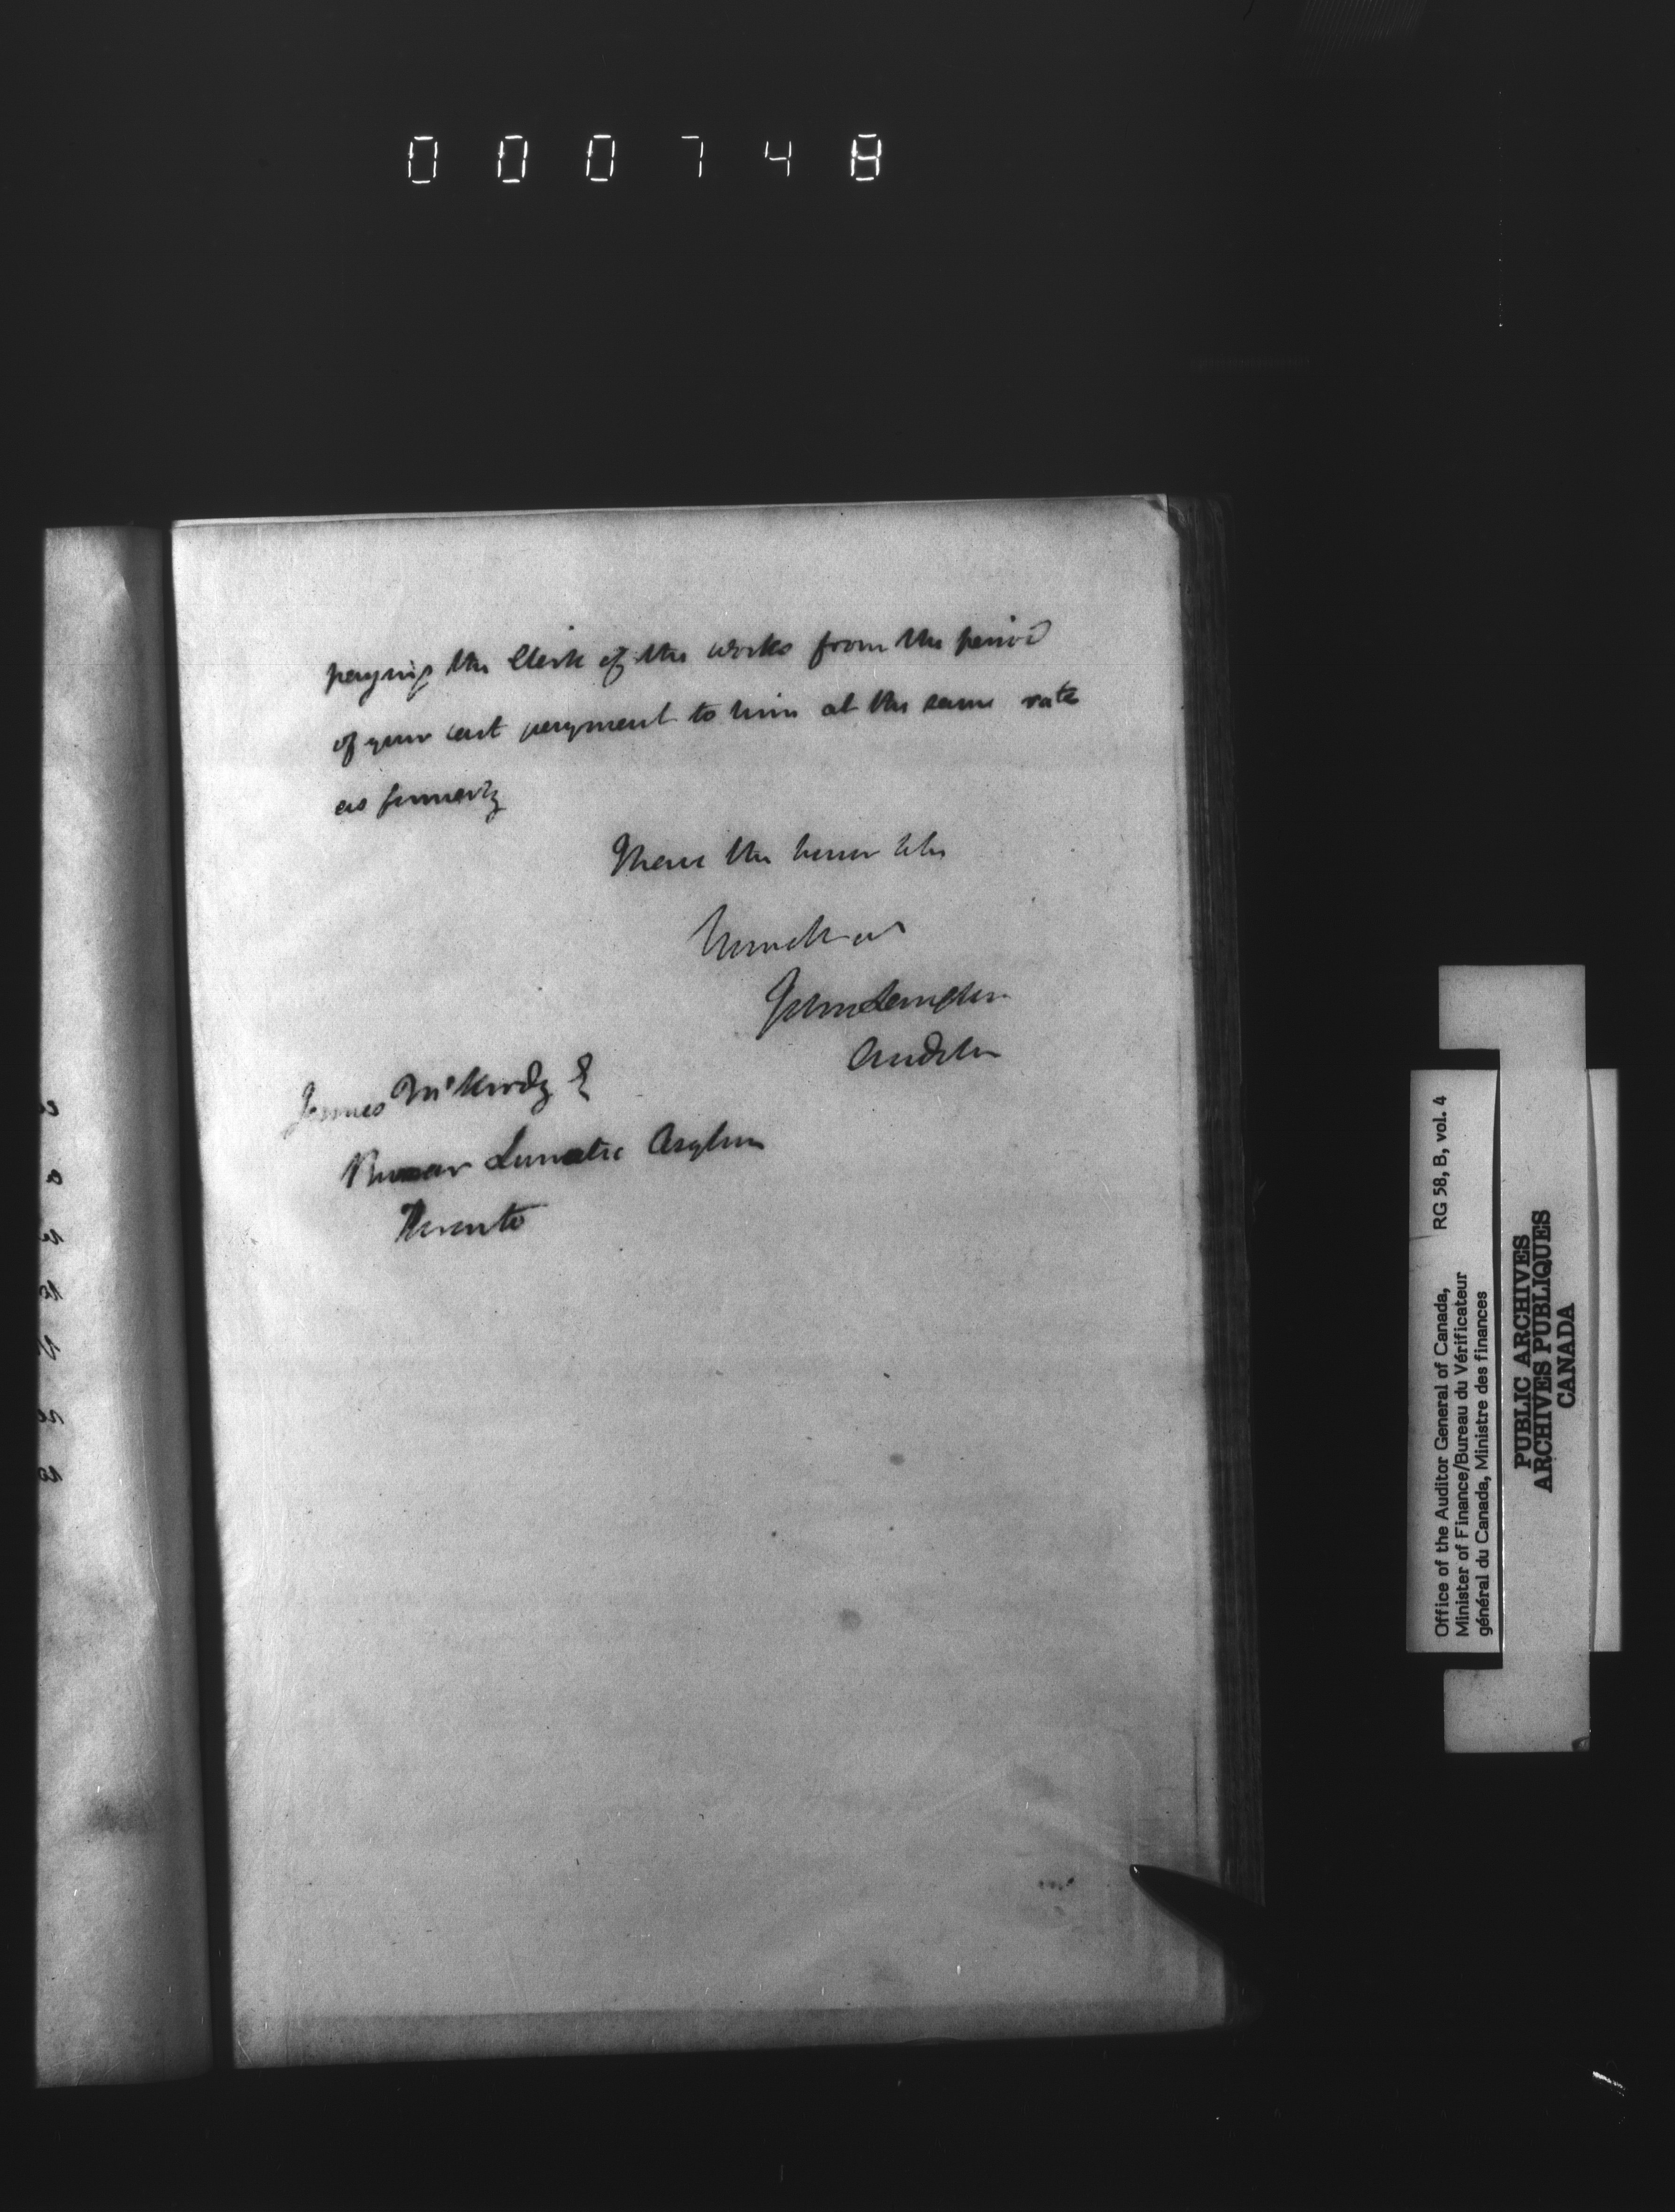 000748
paying the Clerk of the works from the period
of your last payment to him at the same rate
as formerly
I have the honor to be
John Langton
Auditor
James McKirdy E
Bursar Lunatic Asylum
Toronto
Office of the Auditor General of Canada,
Minister of Finance/Bureau du Vérificateur
général du Canada, Ministre des finances
RG 58, B, vol. 4
PUBLIC ARCHIVES
ARCHIVES PUBLIQUES
CANADA